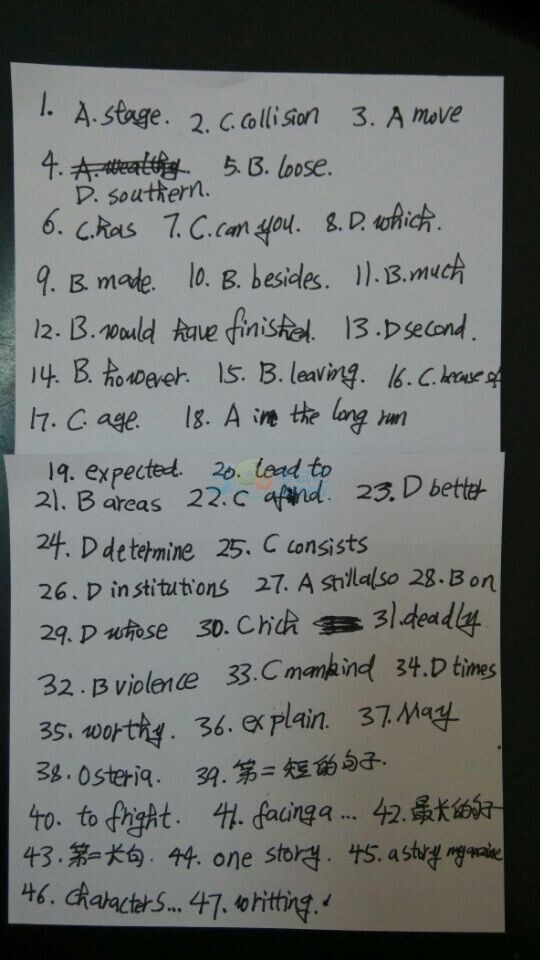 1. A. stage. 2. C. collision 3. A move
4. 5. B. loose.
D. southern.
6. C. has 7. C. can you. 8. D. which.
9. B. made. 10. B. besides. 11. B. much
12. B. would have finished. 13. D second.
14. B. however. 15. B. leaving. 16. C. because of
17. C. age. 18. A in the long run
19. expected. 20. lead to
21. B areas 22. C 23. D better
24. D determine 25. C consists
26. D institutions 27. A still also 28. B on
29. D whose 30. C rich 31. deadly
32. B violence 33. C mankind 34. D times
35. worthy. 36. explain. 37. May
38. Osteria. 39. 第二短的句子.
40. to fright. 41. facing a ... 42. 最长的句子
43. 第二长句. 44. one story. 45. a story magazine
46. characters... 47. writting.